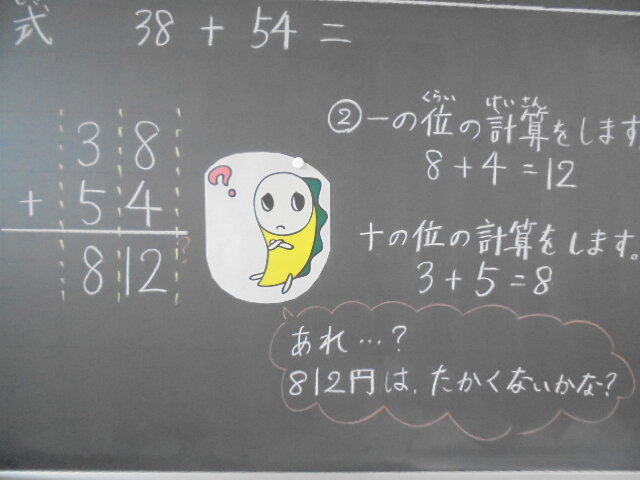 式 38 + 54 =
38
+ 54
812?
?
②一の位の計算をします。
くらい けいさん
8+4=12
十の位の計算をします。
3+5=8
あれ…?
812円は、たかくないかな?